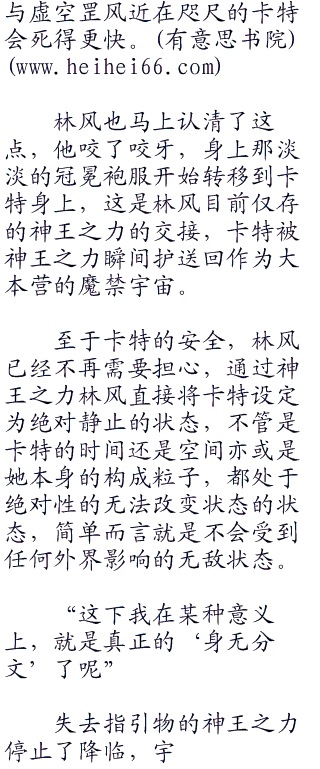 与虚空罡风近在咫尺的卡特
会死得更快。(有意思书院)
(www.heihei66.com)
林风也马上认清了这
点，他咬了咬牙，身上那淡
淡的冠冕袍服开始转移到卡
特身上，这是林风目前仅存
的神王之力的交接，卡特被
神王之力瞬间护送回作为大
本营的魔禁宇宙。
至于卡特的安全，林风
已经不再需要担心，通过神
王之力林风直接将卡特设定
为绝对静止的状态，不管是
卡特的时间还是空间亦或是
她本身的构成粒子，都处于
绝对性的无法改变状态的状
态，简单而言就是不会受到
任何外界影响的无敌状态。
“这下我在某种意义
上，就是真正的‘身无分
文’了呢”
失去指引物的神王之力
停止了降临，宇